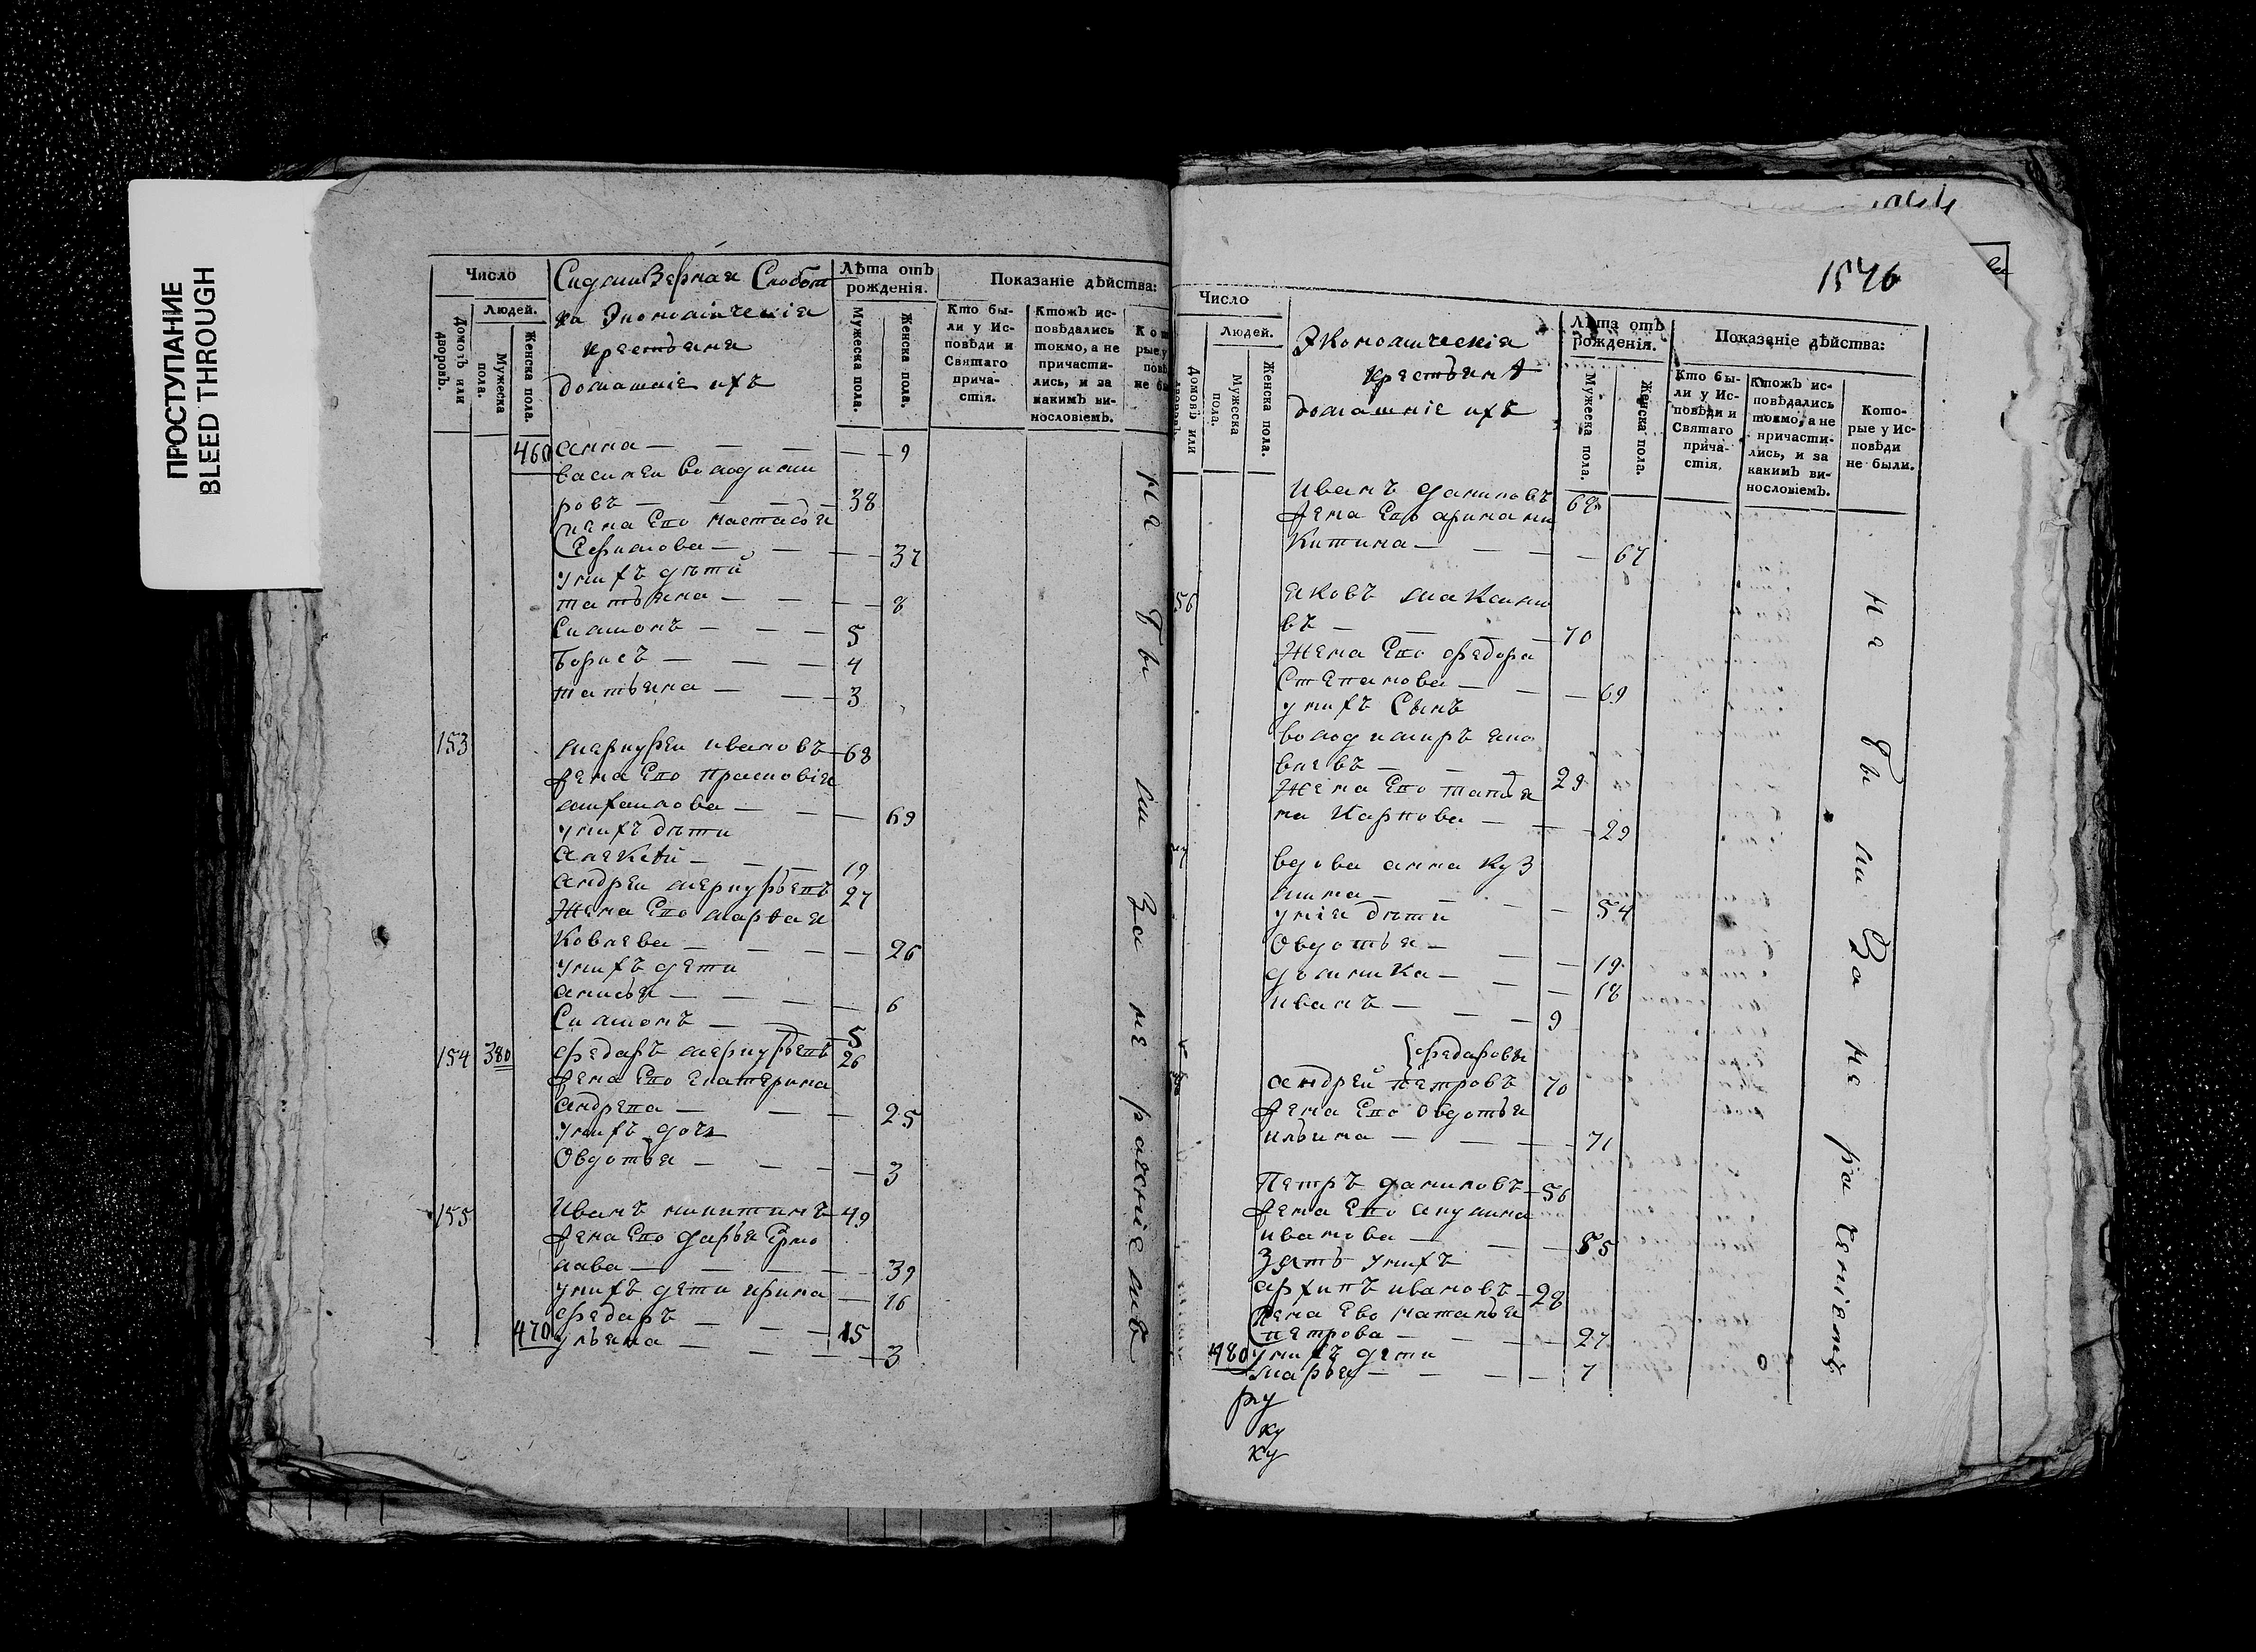 ПРОСТУПАНИЕ
BLEED THROUGH
Число
Людей.
Домовъ или дворовъ.
Мужеска пола.
Женска пола.
Слобот
ка Экономическія
крестьяня
домашніе ихъ
Лѣта отъ рожденія.
Мужеска пола.
Женска пола.
Показаніе дѣйства:
Кто бы-
ли у Ис-
повѣди и
Святаго
прича-
стія.
Ктожъ ис-
повѣдались
токмо, а не
причасти-
лись, и за
какимъ ви-
нословіемъ.
460 анна — — — 9
василеи володими
ровъ — — — 38
жена Его настасья
Ефимова — — — 37
у них ъ дѣти
татьяна — — — 8
Симионъ — — — 5
Борисъ — — — 4
татьяна — — 3
153 меркуреи ивановъ — 68
жена Его прасковія
михаилова — — — 69
у нихъ дѣти
алексѣй — — — 19
андреи меркурьевъ 27
Жена Его марѳа я
ковлева — — — 26
у нихъ дети
анисья — — — 6
Симионъ — — 5
154 380 федаръ меркурьевъ 26
жена Его екатерина
андрева — — — 25
у нихъ дочь
Овдотья — — — 3
155 Иванъ никитинъ — 49
жена Его дарья Ермо
лава — — — 39
у нихъ дети ирина — 16
федаръ — — — 15
470 ульяна — — — 3
не бы ли за не раченіемъ
1546
Число
Людей.
Домовъ или дворовъ.
Мужеска пола.
Женска пола.
Экономическія
крестьяня
домашніе ихъ
Лѣта отъ рожденія.
Мужеска пола.
Женска пола.
Показаніе дѣйства:
Кто бы-
ли у Ис-
повѣди и
Святаго
прича-
стія.
Ктожъ ис-
повѣдались
токмо, а не
причасти-
лись, и за
какимъ ви-
нословіемъ.
Кото-
рые у Ис-
повѣди
не были.
иванъ даниловъ 68
жена Его арина ни
китина — — — 67
56 яковъ макѣимо
въ — — — 70
Жена Его федора
Степанова — — — 69
у нихъ Сынъ
володимиръ яко
влевъ — — — 29
Жена Его татья
на Карпова — — 29
вдова анна куз
мина — — — 54
у нія дѣти
Овдотья — — — 19
домника — — — 18
иванъ — — — 9
федаровы
андрей петровъ 70
жена Его Овдотья
ильина — — — 71
Петръ даниловъ — 56
жена Его акулина
иванова — — — 55
Зять у нихъ
архипъ ивановъ — 28
жена Ево наталья
петрова — — — 27
480 у нихъ дети
марья — — — 7
не бы ли за не ра ченіемъ
ру
ку
ку